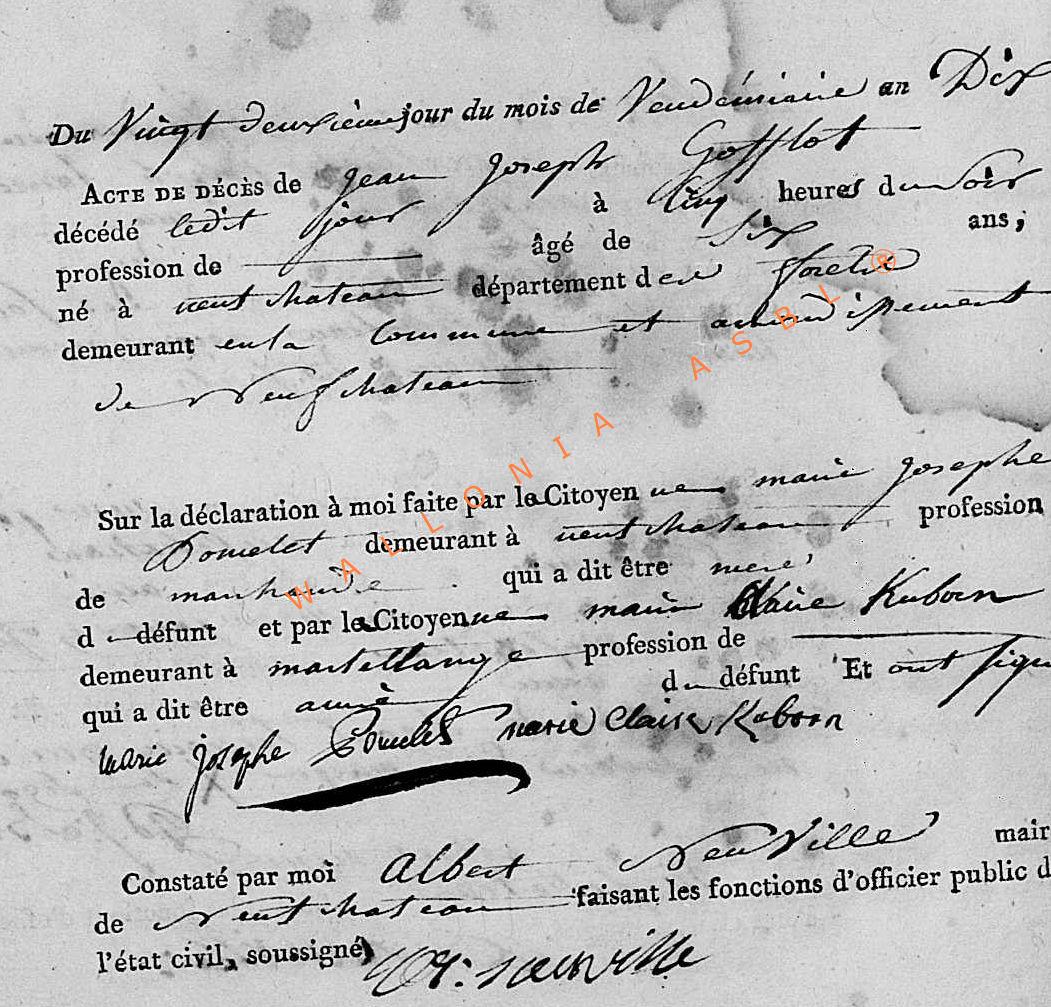 Du Vingt deuxième jour du mois de Vendémiaire an Dix
ACTE DE DÉCÈS de jean joseph Gofflot
décédé ledit jour à Cinq heures du Soir
profession de âgé de six ans,
né à neufchateau département des forets
demeurant en la Commune et arrondissement
de Neufchateau
Sur la déclaration à moi faite par la Citoyenne marie josephe
Pomelet demeurant à neufchateau profession
de marchande qui a dit être mere
d défunt et par la Citoyenne marie Claire Kuborn
demeurant à martellange profession de
qui a dit être amie du défunt Et ont signé
marie josephe marie Claire Kuborn
Constaté par moi Albert Neuville mair
de Neufchateau faisant les fonctions d'officier public d
l'état civil, soussigné, neuville
WALLONIA ASBL ®